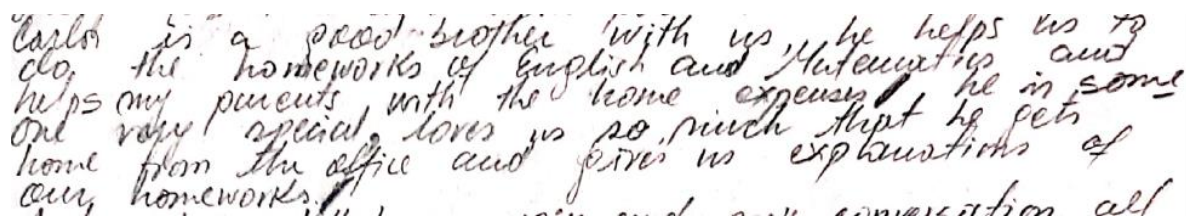 Carlos is a good brother with us, he helps us to
do, the homeworks of English and Matematics and
helps my parents with the home expenses, he is some
one very special, loves us so much that he gets
home from the office and gives us explanations of
our homeworks.
and our conversation all